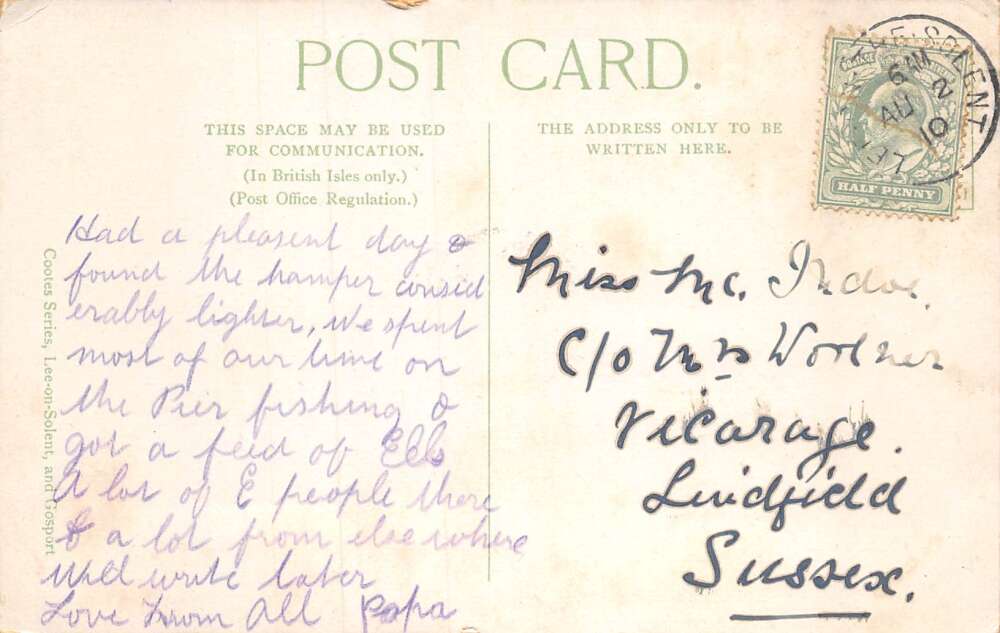 POST CARD.
THIS SPACE MAY BE USED
FOR COMMUNICATION.
(In British Isles only.)
(Post Office Regulation.)
THE ADDRESS ONLY TO BE
WRITTEN HERE.
LEE-ON-THE-SOLENT
6 AM
AU 2
10
HALF PENNY
Cootes Series, Lee-on-Solent, and Gosport
Had a pleasent day &
found the hamper consid
erably lighter, We spent
most of our time on
the Pier fishing &
got a feed of Eels
A lot of E people there
& a lot from elsewhere
Will write later
Love from All Papa
Miss Mc.
C/o Mrs
Vicarage.
Lindfield
Sussex.